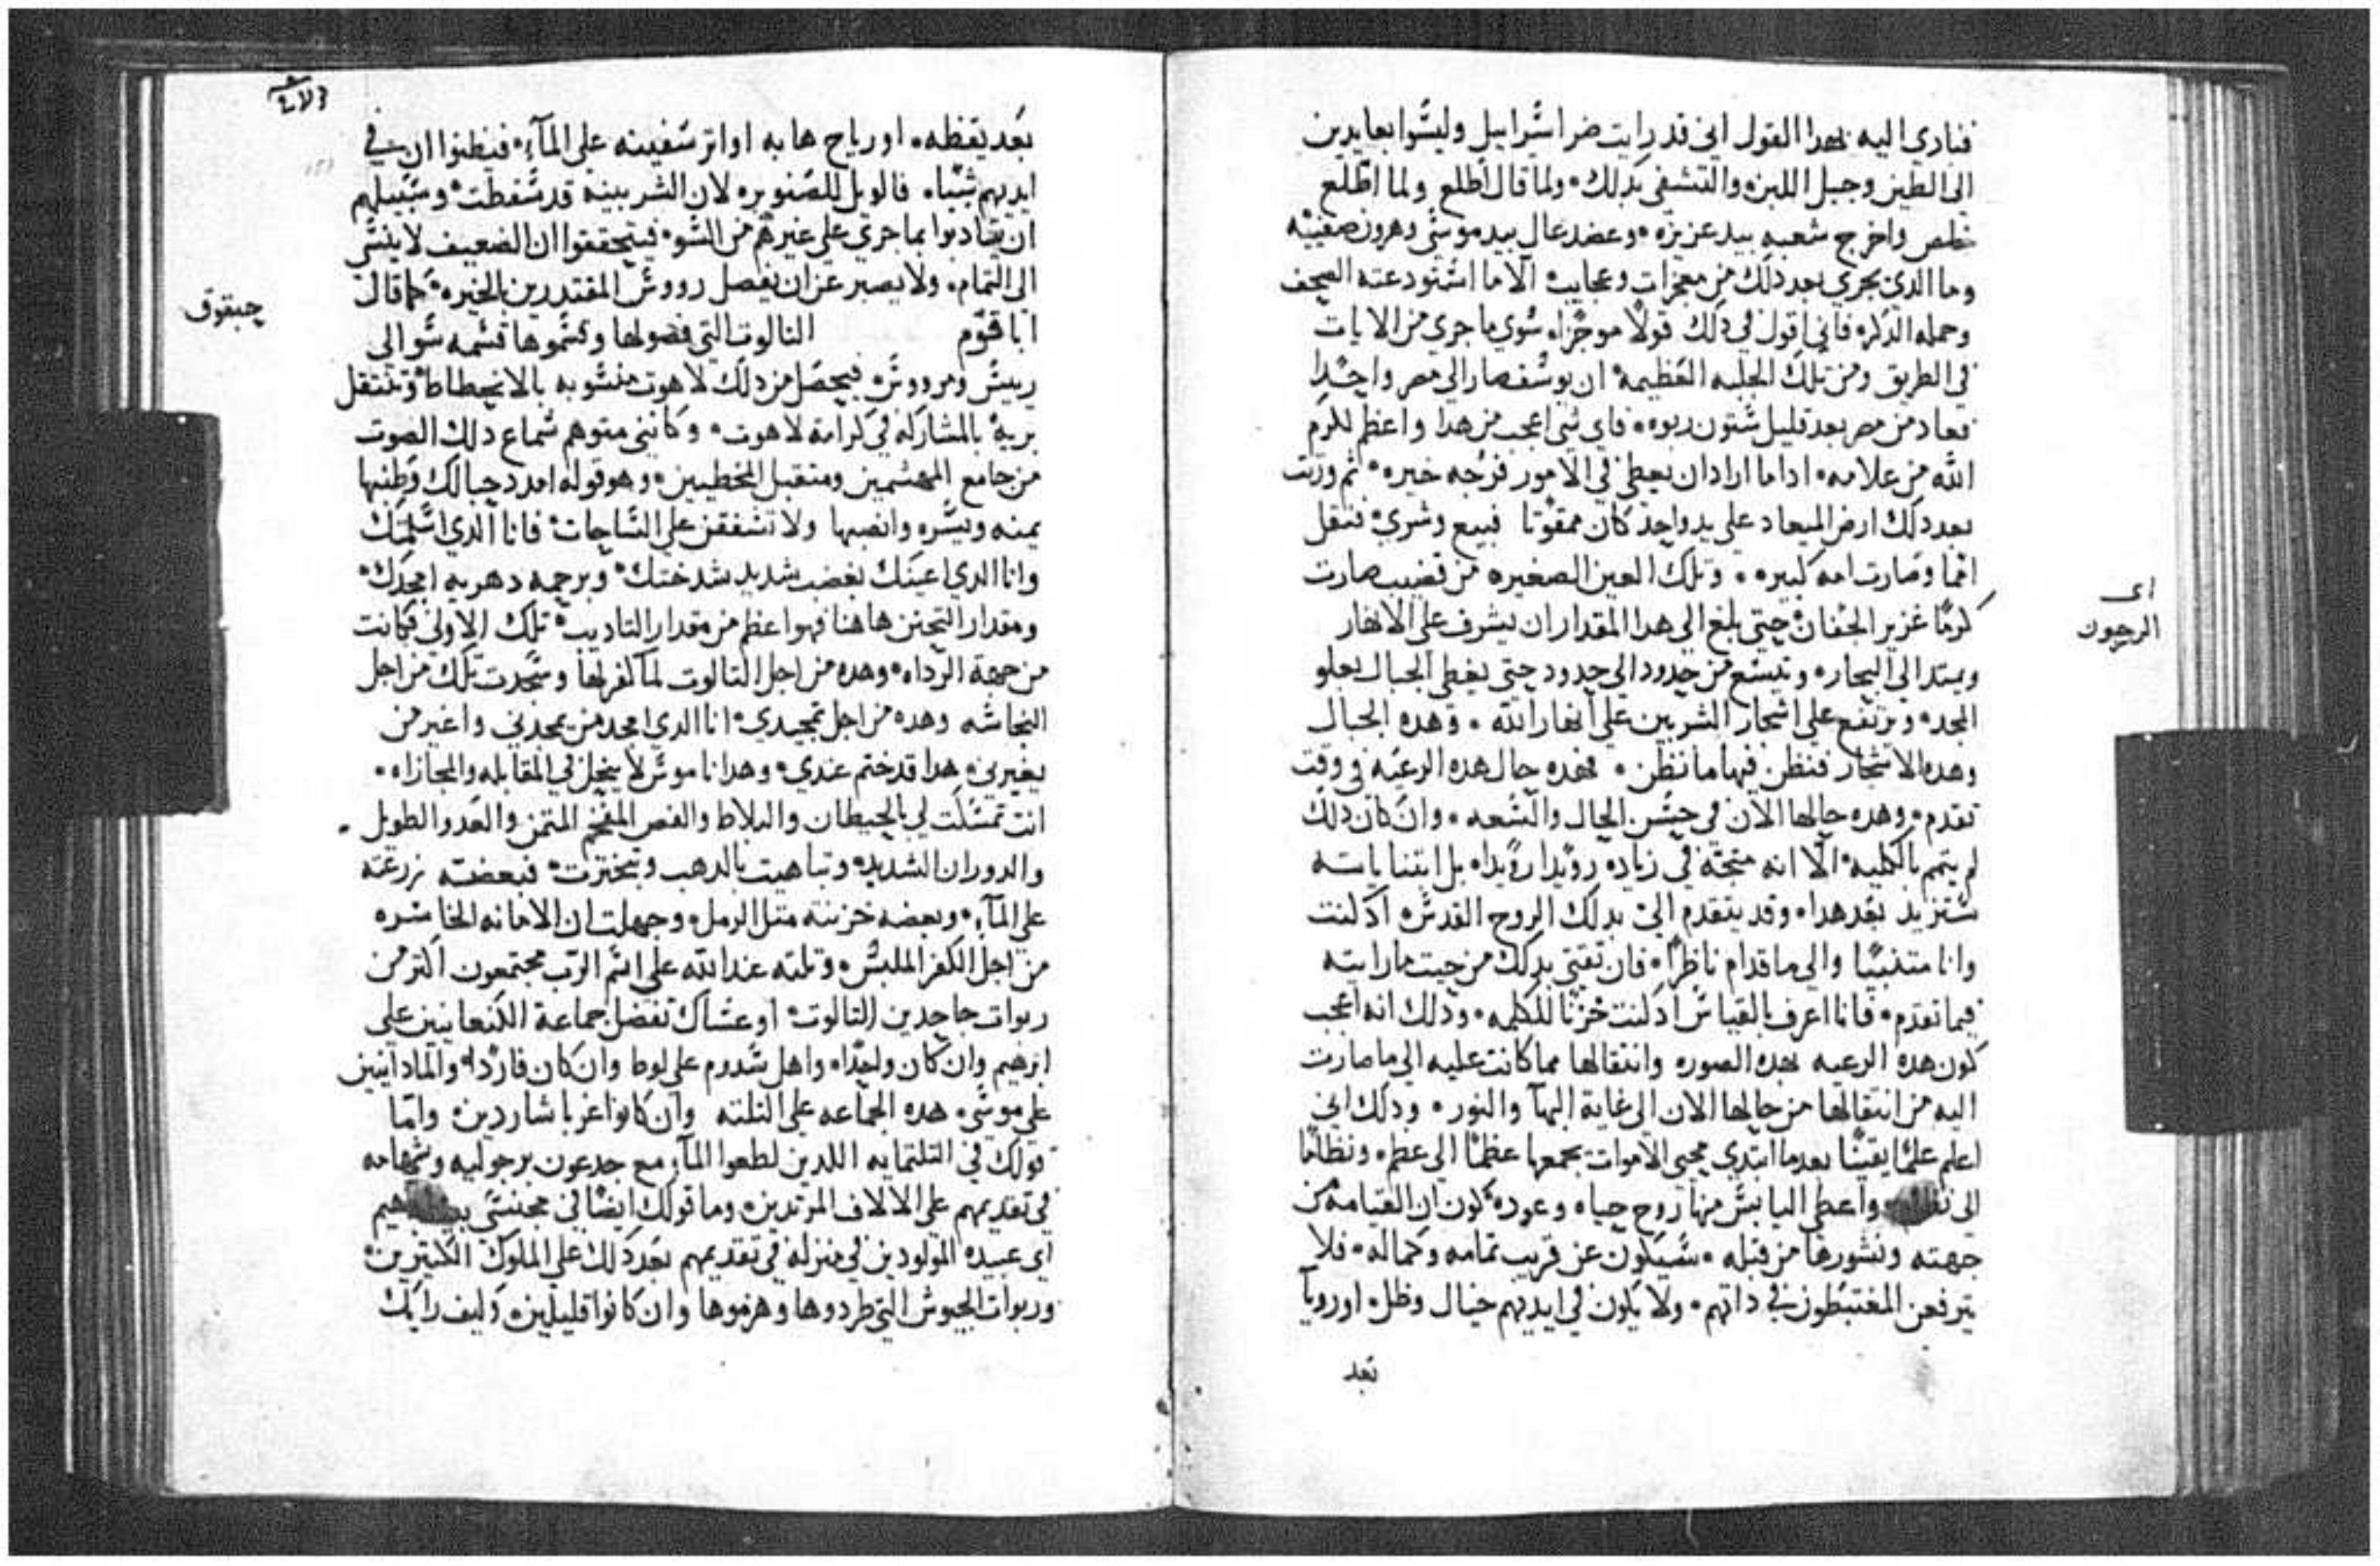 فنادى اليه بهدا القول انى قد رايت ضر اسراييل وليسوا بعايدين
الى الطين وجبل اللبن والتشفى بدلك ولما قال اطلع ولما اطلع
خلص واخرج شعبه بيد عزيزه وعضد عال بيد موسى وهرون صفييه
وما الدى يجرى بعد دلك من معجزات وعجايب الا ما استودعته الصحف
وحمله الدكر فانى اقول فى دلك قولا موجزا سوى ما جرى من الايات
فى الطريق ومن تلك الجلبه العظيمه ان يوسف صار الى مصر واحدا
فعاد من مصر بعد قليل ستون ربوه فاى شى اعجب من هدا واعظم لكرم
الله من علامه ادا ما اراد ان يعطى فى الامور فرجه خيره ثم ورثت
بعد دلك ارض الميعاد على يد واحد كان ممقوتا فبيع وشرى فنقل
امما وصارت امه كبيره وتلك العين الصغيره من قضيب صارت
كرما غزير الجفان حتى بلغ الى هدا المقدار ان يشرف على الانهار
ويمتد الى البحار ويتسع من حدود الى حدود حتى يغطى الجبال بعلو
المجد ويرتفع على اشجار الشربين على انهار الله وهده الجبال
وهده الاشجار فنظن فيها ما نظن فهده حال هده الرعيه فى وقت
تقدم وهده حالها الان فى حسن الحال والسعه وان كان دلك
لم يتم بالكليه الا انه متجه فى زياده رويدا رويدا بل ابتنا ياته
ستزيد بعد هدا وقد يتقدم الى بدلك الروح القدس اد كنت
وانا متنبيا والى ما قدام ناظرا فان تقتى بدلك من حيت ما رايته
فيما تقدم فانا اعرف بالقياس اد كنت حزنا للكلمه ودلك انه اعجب
كون هده الرعيه بهده الصوره وانتقالها مما كانت عليه الى ما صارت
اليه من انتقالها من حالها الان الى غاية البها والنور ودلك انى
اعلم علما يقينا بعد ما ابتدى محيى الاموات بجمعها عظما الى عظم ونظاما
الى واعطى اليابس منها روح حياه وعوده كون ان القيامه من
جهته ونشورها من قبله سيكون عن قريب تمامه وكماله فلا
يترفعن المغتبطون فى داتهم ولا يكون فى ايديهم خيال وظل او رويا
بعد
اى
الرجون
بعد يقظه او رياح هابه او اتر سفينه على الما فيظنوا ان فى
ايديهم شيا فالويل للصنوبر لان الشربينه قد سقطت وسبيلهم
ان يتادبوا بما جرى على غيرهم من السو فيتحققوا ان الضعيف لا ينسى
الى التمام ولا يصبر عن ان يفصل رووس المقتدرين بالخيره كما قال
اباقوم التالوت التى فضولها وقسموها قسمه سو الى
رييس ومرووس فيحصل من دلك لاهوت منسوبه بالانحطاط وتنتقل
بريه بالمشاركه فى كرامة لاهوت وكاننى متوهم سماع دلك الصوت
من جامع المهشمين ومتقبل المخطيين وهو قوله امدد حبالك وطنبها
يمنه ويسره وانصبها ولا تشفقن على الساحات فانا الدى اسلمتك
وانا الدى اعينك بغضب شديد شدختك وبرحمه دهريه امجدك
ومقدار التحنن هاهنا فهو اعظم من مقدار التاديب تلك الاولى فكانت
من جهة الرداه وهده من اجل التالوت لما كفر بها وسجدت تلك من اجل
النجاسه وهده من اجل تمجيدى انا الدى امجد من يمجدنى واغير من
يغيرنى هدا قد ختم عندى وهدا ناموس لا ينحل فى المقابله والمجازاه
انت تمسكت لى بالحيطان والبلاط والفص المفخم المتمن والعدو الطويل
والدوران الشديد وتباهيت بالدهب وتبخترت فبعضه زرعته
على الما وبعضه خزنته متل الرمل وجهلت ان الامانه الخاسره
من اجل الكفر الملبس وتلته عند الله على اسم الرب مجتمعون اكتر من
ربوات جاحدين التالوت او عساك تفضل جماعة الكنعانيين على
ابرهيم وان كان واحدا واهل سدوم على لوط وان كان فاردا والمادانيين
على موسى هده الجماعه على التلته وان كانوا غربا شاردين واما
قولك فى التلتمايه اللدين لطعوا الما مع جدعون برجوليه وشهامه
فى تقديمهم على الالاف المرتدين وما قولك ايضا فى
اى عبيده المولودين فى منزله فى تقديمهم بعد دلك على الملوك الكتيرين
وربوات الجيوش التى طردوها وهزموها وان كانوا قليلين وكيف رايك
حبقوق